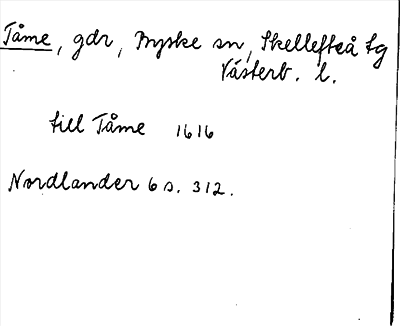 Tåme, gdr, Myske sn, Skellefteå tg
Västerb. l.
till Tåme 1616
Nordlander 6 s. 312.